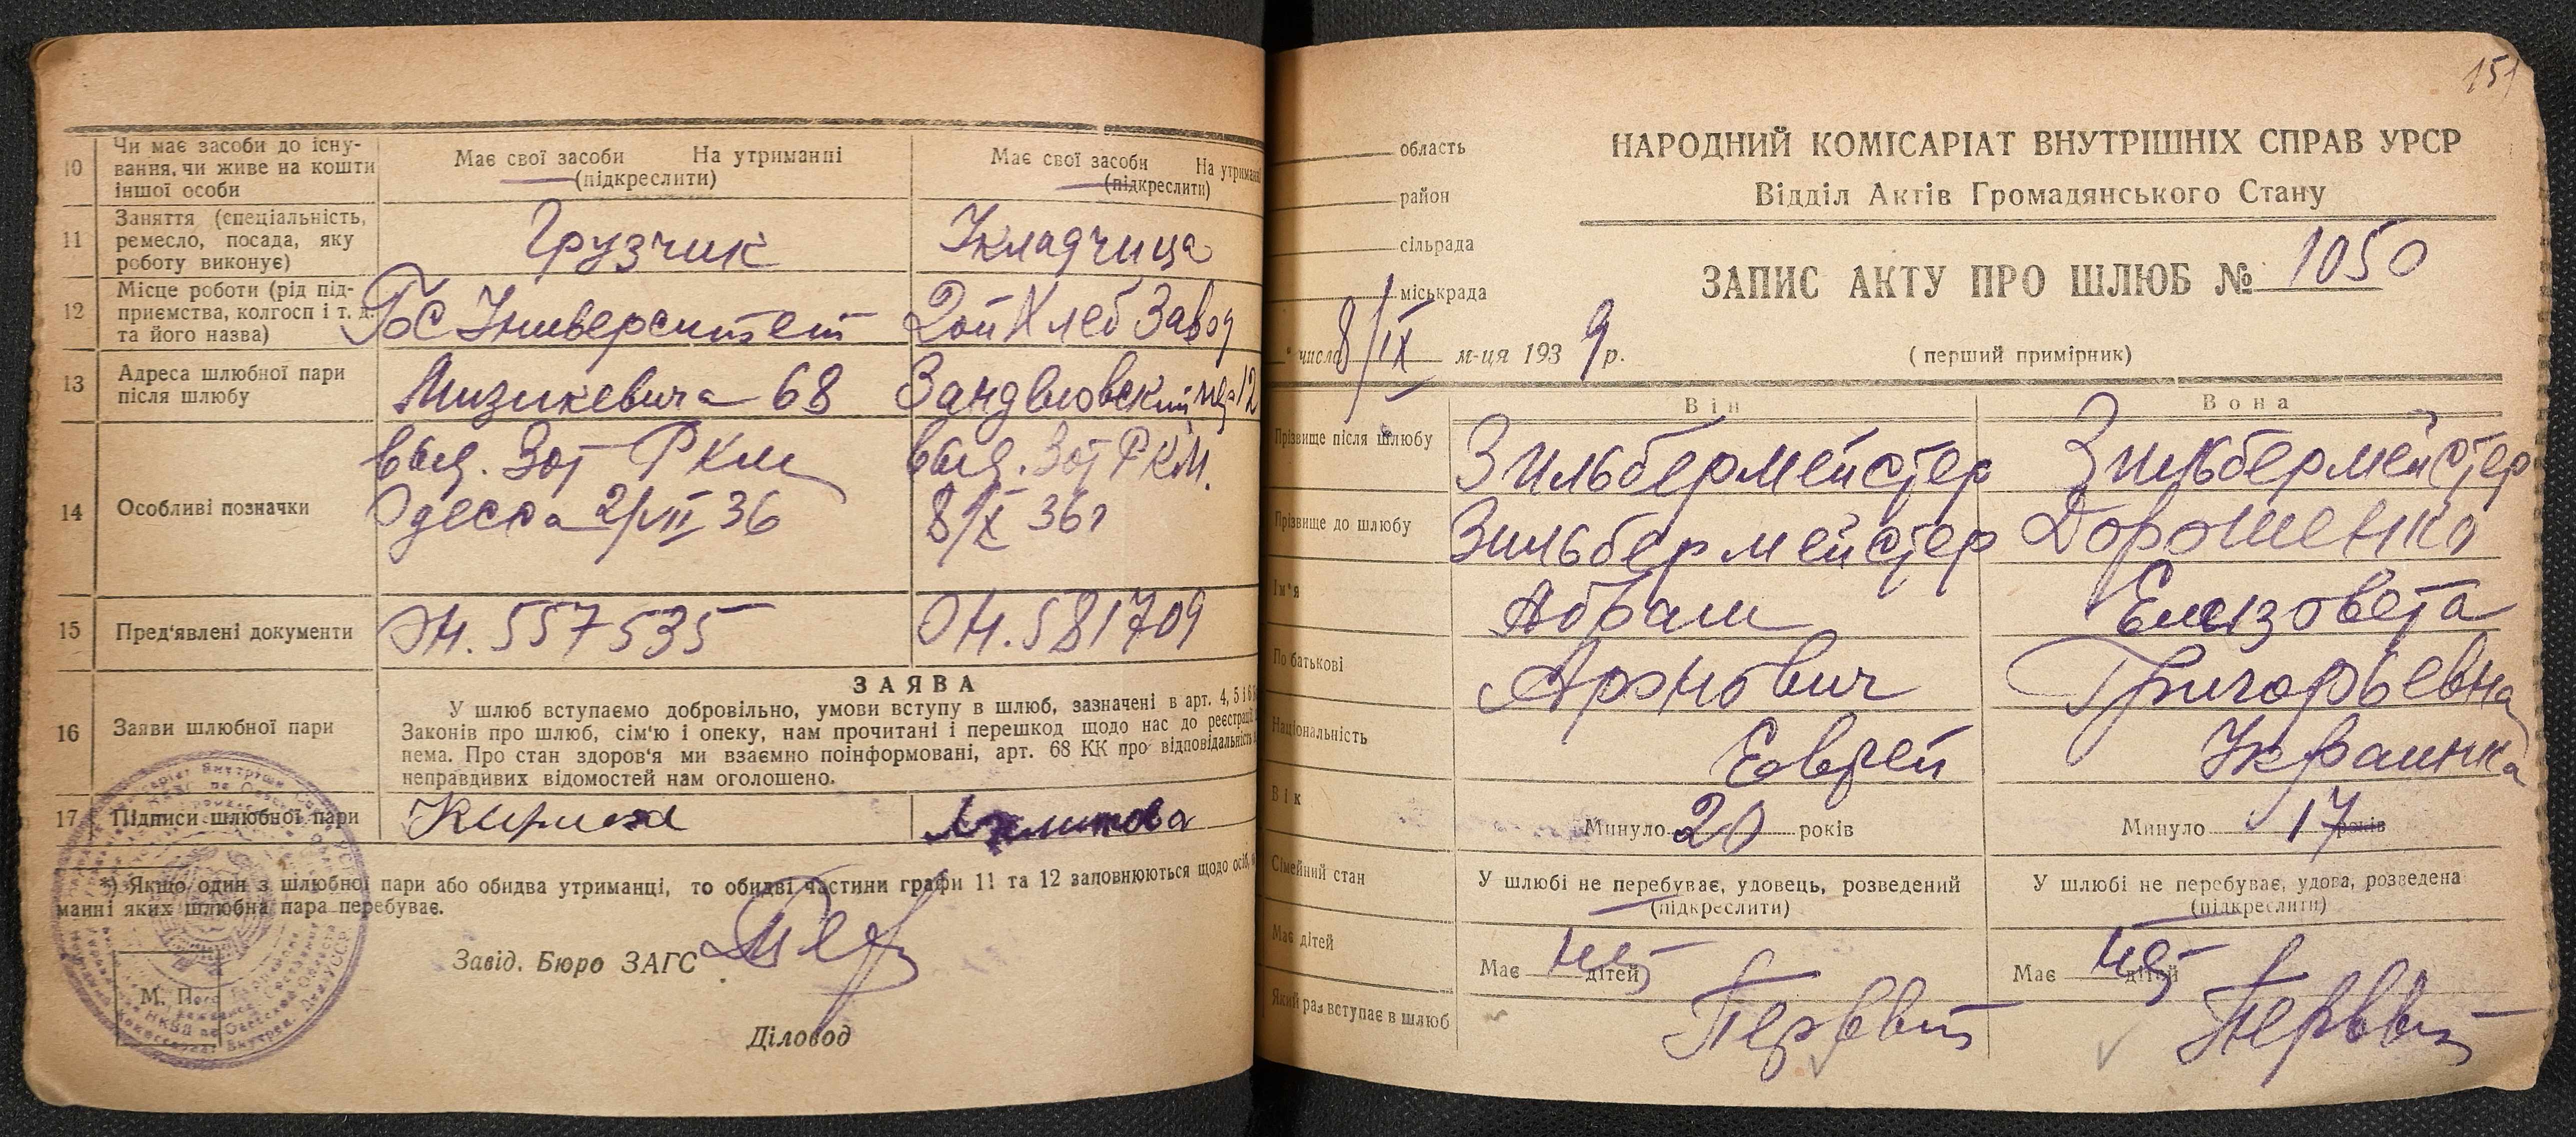 10 Чи має засоби до існу-
вання, чи живе на кошти
іншої особи
Має свої засоби На утриманні
(підкреслити)
Має свої засоби На утриманні
(підкреслити)
11 Заняття (спеціальність,
ремесло, посада, яку
роботу виконує)
Грузчик
Укладчица
12 Місце роботи (рід під-
приємства, колгосп і т. д.
та його назва)
Гос Университет
2ой Хлеб Завод
13 Адреса шлюбної пари
після шлюбу
Мизикевича 68
12
14 Особливі позначки
выд. Зот РКМ
Одесса 2/VII 36
выд. Зот РКМ.
8/X 36г
15 Пред'явлені документи
ОН. 557535
ОН. 581709
16 Заяви шлюбної пари
ЗАЯВА
У шлюб вступаємо добровільно, умови вступу в шлюб, зазначені в арт. 4, 5 і 6
Законів про шлюб, сім'ю і опеку, нам прочитані і перешкод щодо нас до реєстрації
нема. Про стан здоров'я ми взаємно поінформовані, арт. 68 КК про відповідальність
неправдивих відомостей нам оголошено.
17 Підписи шлюбної пари
*) Якщо один з шлюбної пари або обидва утриманці, то обидві частини графи 11 та 12 заповнюються щодо осіб,
манні яких шлюбна пара перебуває.
Завід. Бюро ЗАГС
М. П.
Діловод
151
область
район
сільрада
міськрада
числа 8/IX м-ця 1939 р.
НАРОДНИЙ КОМІСАРІАТ ВНУТРІШНІХ СПРАВ УРСР
Відділ Актів Громадянського Стану
ЗАПИС АКТУ ПРО ШЛЮБ № 1050
(перший примірник)
Він
Вона
Прізвище після шлюбу
Зильбермейстер
Зильбермейстер
Прізвище до шлюбу
Зильбермейстер
Дорошенко
Ім'я
Абрам
Елизовета
По батькові
Аронович
Григорьевна
Національність
Еврей
Украинка
Вік
Минуло 20 років
Минуло 17 років
Сімейний стан
У шлюбі не перебуває, удовець, розведений
(підкреслити)
У шлюбі не перебуває, удова, розведена
(підкреслити)
Має дітей
Має нет дітей
Має нет дітей
Який раз вступає в шлюб
Первый
Первый